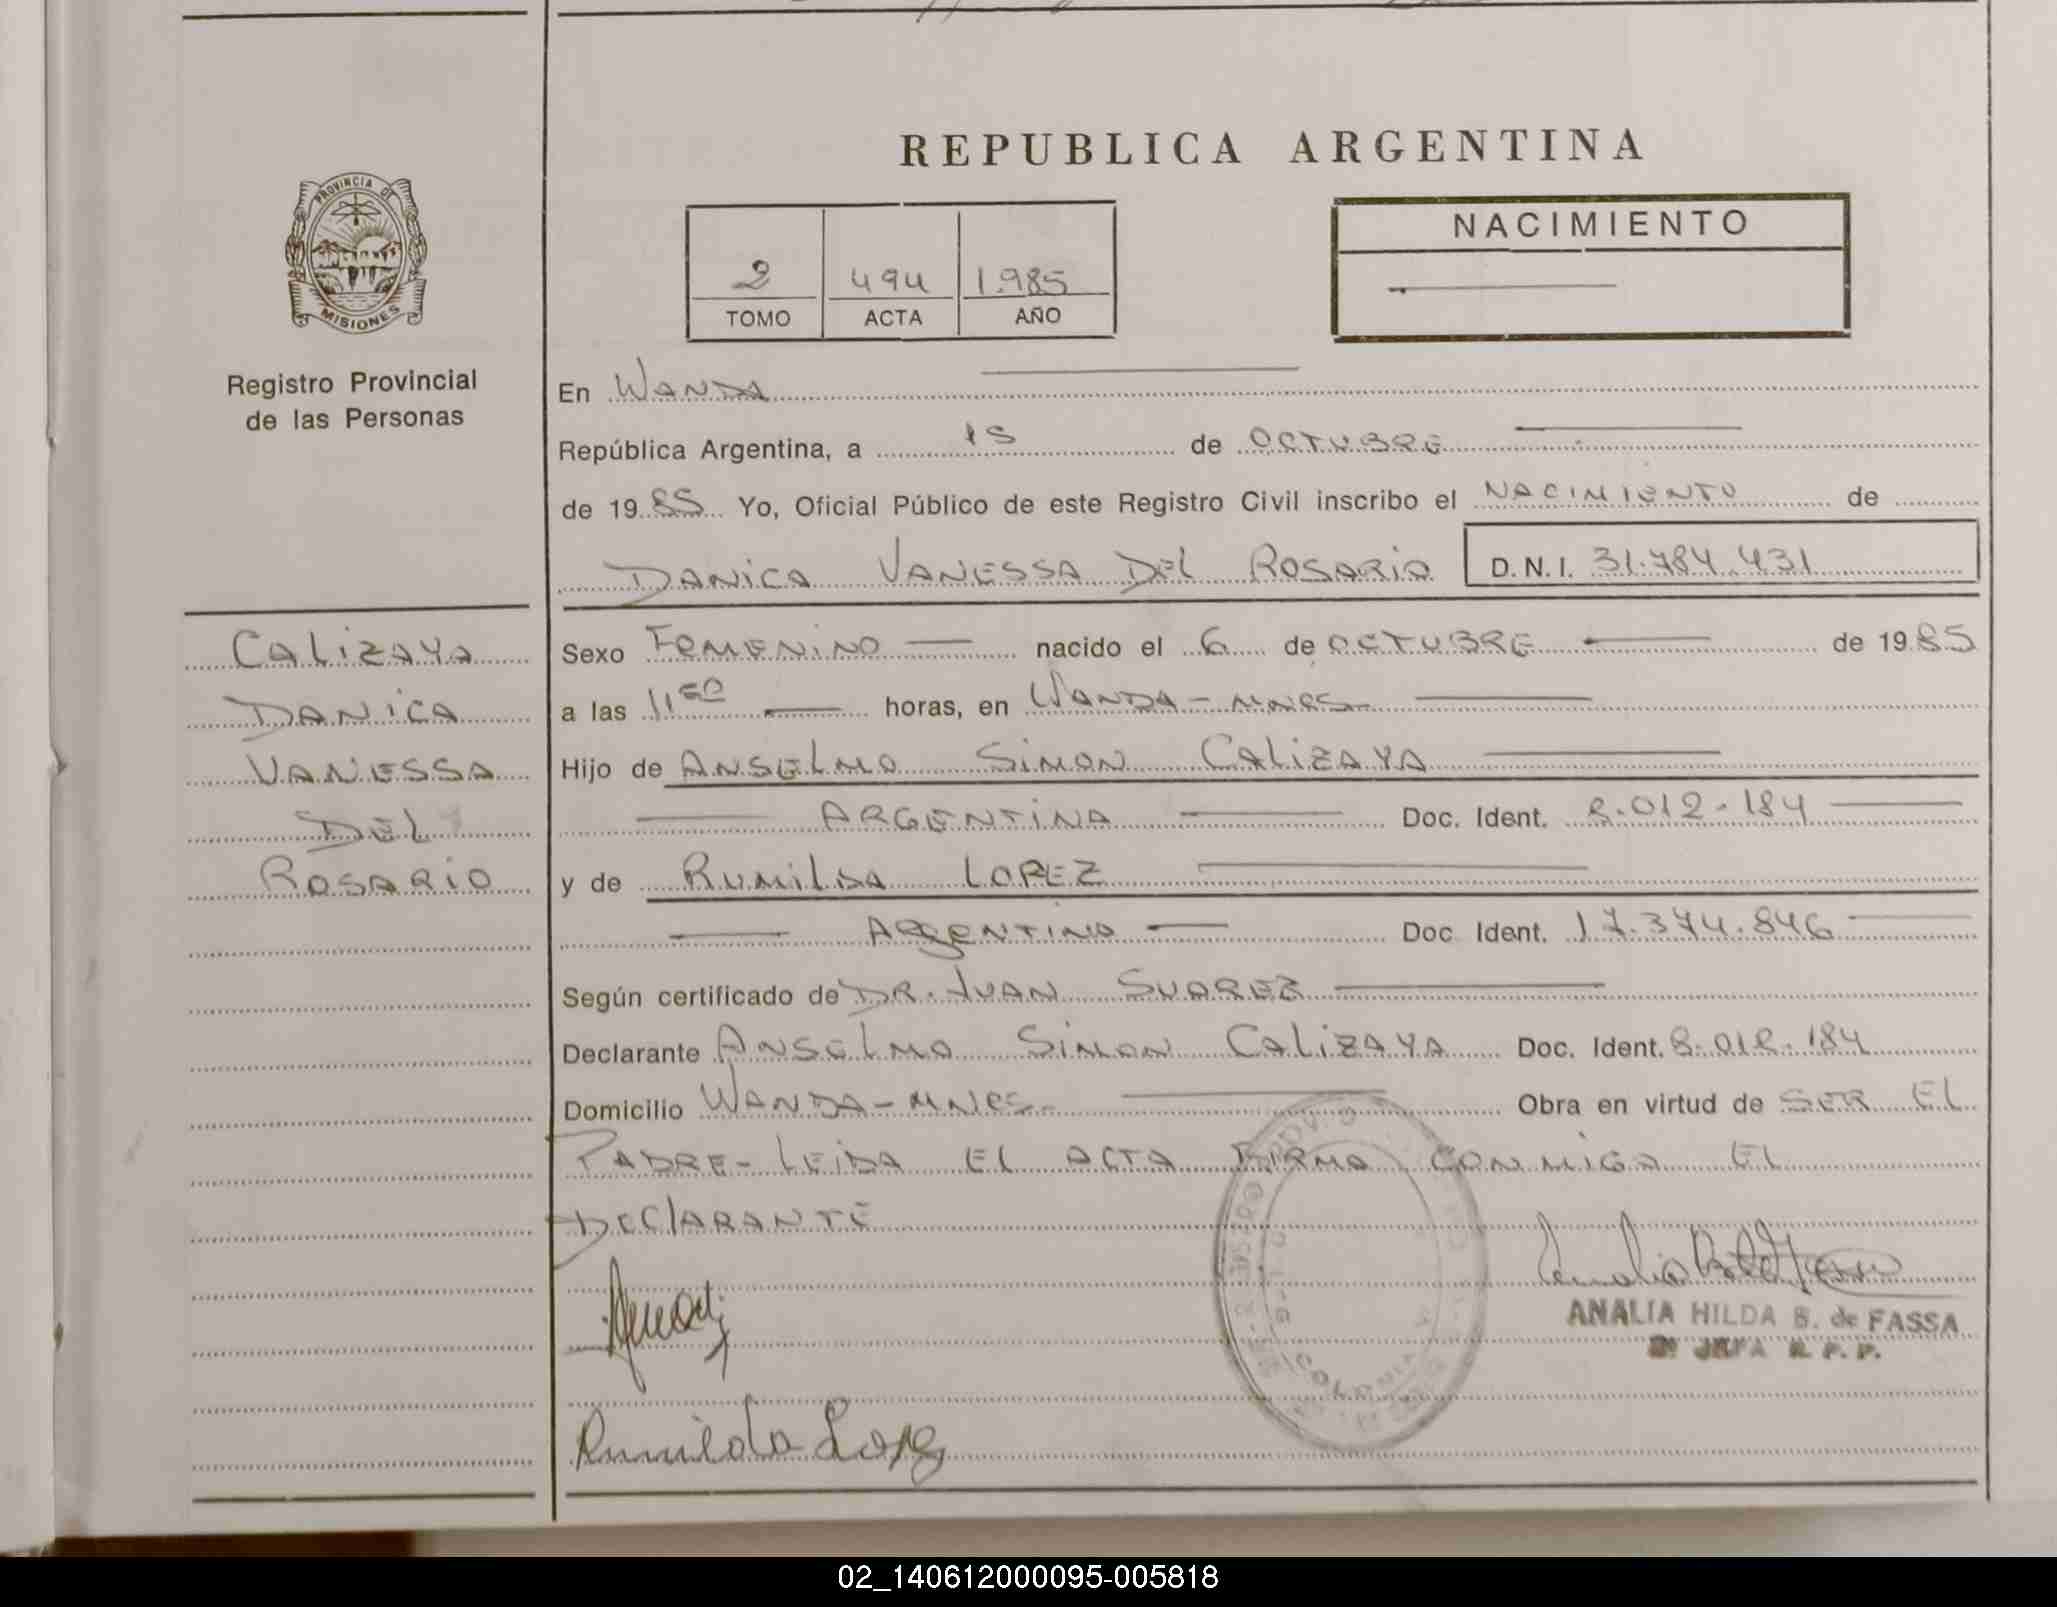 REPUBLICA ARGENTINA
PROVINCIA DE
MISIONES
Registro Provincial
de las Personas
2 494 1.985
TOMO ACTA AÑO
NACIMIENTO
En WANDA
República Argentina, a 15 de OCTUBRE
de 1985 Yo, Oficial Público de este Registro Civil inscribo el NACIMIENTO de
DANICA VANESSA DEL ROSARIO D.N.I. 31.784.431
CALIZAYA
DANICA
VANESSA
DEL
ROSARIO
Sexo FEMENINO nacido el 6 de OCTUBRE de 1985
a las 11 horas, en WANDA-MNES-
Hijo de ANSELMO SIMON CALIZAYA
ARGENTINA Doc. Ident. 8.012.184
y de RUMILDA LOPEZ
ARGENTINA Doc. Ident. 17.374.846
Según certificado de DR. JUAN SUAREZ
Declarante ANSELMO SIMON CALIZAYA Doc. Ident. 8.012.184
Domicilio WANDA-MNES- Obra en virtud de SER EL
PADRE- LEIDA EL ACTA FIRMA CONMIGO EL
DECLARANTE
ANALIA HILDA B. de FASSA
JEFA R. P. P.
Rumilda Lopez
02_140612000095-005818